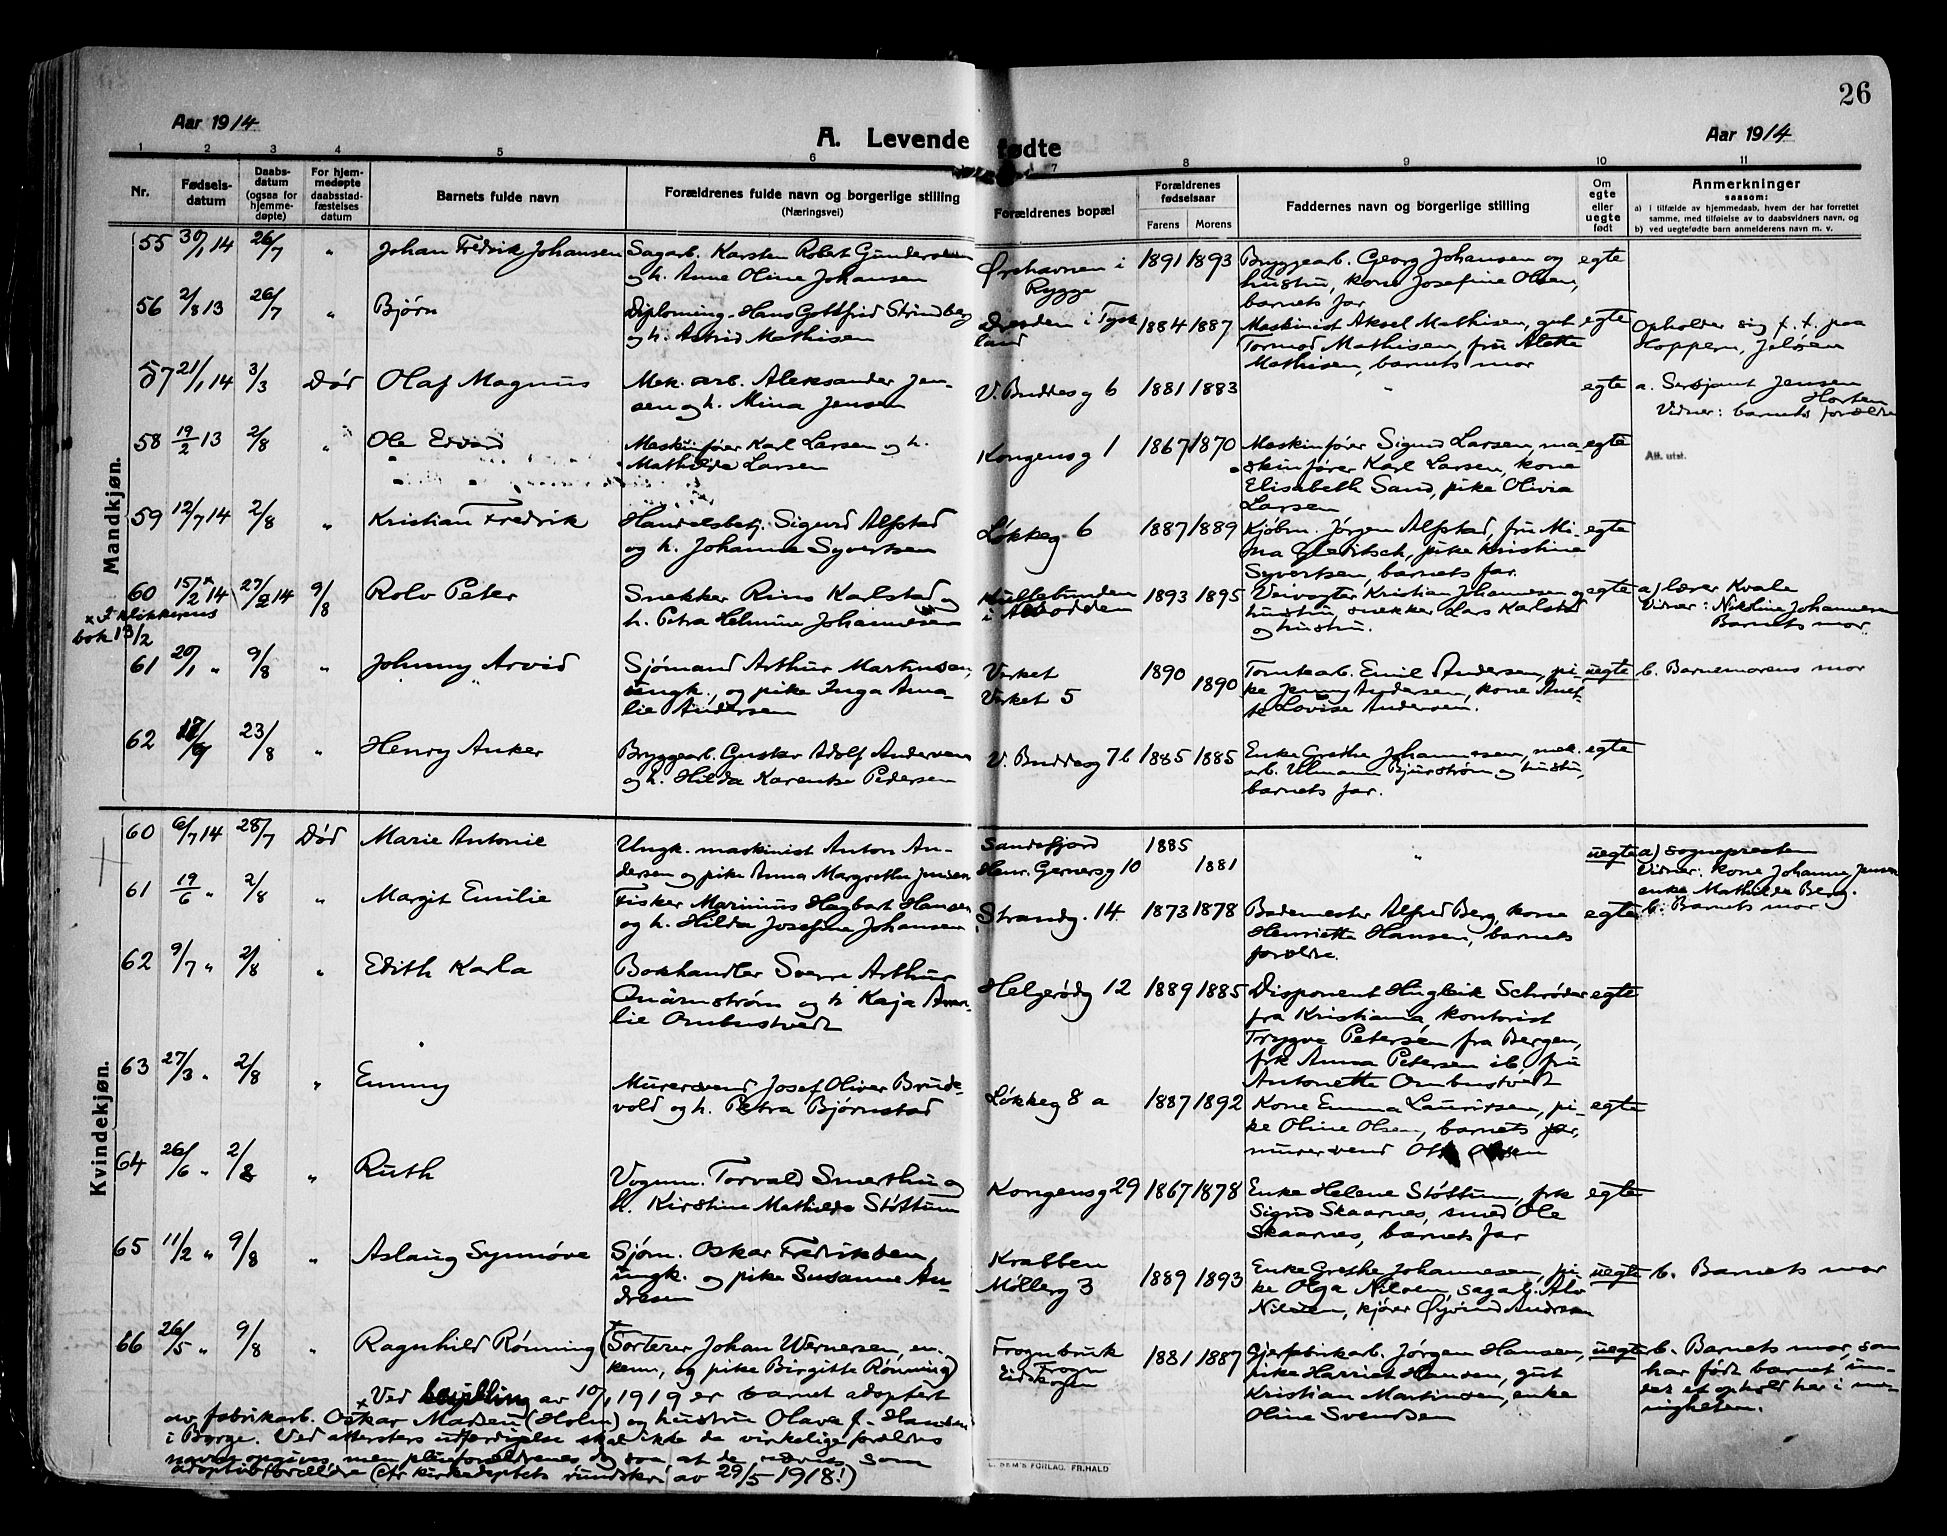 26
Aar 1914
A. Levende fødte
Aar 1914
1 2 3 4 5 6 7 8 9 10 11
Nr.
Fødsels-
datum
Daabs-
datum
(ogsaa for
hjemme-
døpte)
For hjem-
medøpte
daabsstad-
fæstelses
datum
Barnets fulde navn
Forældrenes fulde navn og borgerlige stilling
(Næringsvei)
Forældrenes bopæl
Forældrenes
fødselsaar
Farens Morens
Faddernes navn og borgerlige stilling
Om
egte
eller
uegte
født
Anmerkninger
saasom:
a) i tilfælde av hjemmedaab, hvem der har forrettet
samme, med tilføielse av to daabsvidners navn, og
b) ved uegtefødte barn anmelderens navn m. v.
Mandkjøn.
55 30/1 14 26/7 " Johan Fredrik Johansen
Sagarb. Karsten Robert Gundersen
og h. Anne Oline Johansen
Ørshavnen i
Rygge
1891 1893
Bryggearb. Georg Johansen og
hustru, kone Josefine Olsen,
barnets far
egte
56 2/8 13 26/7 " Bjørn
Diploming. Hans Gottfrid Strindberg
og h. Astrid Mathisen
Dresden i Tysk
land
1884 1887
Maskinist Aksel Mathisen, gut
Tormod Mathisen, fru Alette
Mathisen, barnets mor
egte
Opholder sig f. t. paa
Hoppern, Jeløen
57 21/1 14 3/3 Død Olaf Magnus
Mek. arb. Aleksander Jen-
sen og h. Mina Jensen
V. Buddesg 6
1881 1883
"
egte
a. Sersjant Jensen
Horten
Vidner: barnets forældre
58 19/2 13 2/8 " Ole Edvard
Maskinfører Karl Larsen og h.
Mathilde Larsen
Kongensg 1
1867 1870
Maskinfører Sigurd Larsen, ma-
skinfører Karl Larsen, kone
Elisabeth Sand, pike Olivia
Larsen
egte
Att. utst.
59 12/7 14 2/8 " Kristian Fredrik
Handelsbetj. Sigurd Alfstad
og h. Johanne Syvertsen
Løkkeg 6
1887 1889
Kjøbm. Jørgen Alfstad, fru Mi-
na Gleditsch, pike Kristine
Syvertsen, barnets far.
egte
60 15/2 x 14 27/2 14 9/8 Rolv Peter
x I klokkerens
bok 13/2
Snekker Rinus Karlstad og
h. Petra Helmine Johannesen
i
1893 1895
Veivogter Kristian Johannesen og
hustru, snekker Lars Karlstad
og hustru.
egte
a) lærer Kvale
Vidner: Nikoline Johannesen
Barnets mor
61 20/1 " 9/8 " Johnny Arvid
Sjømand Arthur Martinsen,
ungk., og pike Inga Ama-
lie Andersen
Verket
Verket 5
1890
1890
Tomtearb. Emil Andersen, pi-
ke Jenny Andersen, kone Anet-
te Lovise Andersen.
uegte
b. Barnemorens mor
62 23/8 " Henry Anker
Bryggearb. Gustav Adolf Andersen
og h. Hilda Karentse Pedersen
V. Buddesg 7b
1885 1885
Enke Grethe Johannesen, mek.
arb. Ullmann Bjurstrøm og hustru,
barnets far.
egte
Kvindekjøn.
60 6/7 14 28/7 Død Marie Antonie
Ungk. maskinist Anton An-
dersen og pike Anna Margrethe Jensen
Sandefjord
Henr. Gernersg 10
1885
1881
"
uegte
a) sognepresten
Vidner: kone Johanne Jensen
enke Mathilde Berg.
b. Barnets mor
61 19/6 " 2/8 " Margit Emilie
Fisker Marinius Hagbart Hansen
og h. Hilda Josefine Johansen
Strandg. 14
1873 1878
Bademester Alfred Berg, kone
Henriette Hansen, barnets
forældre.
egte
62 9/7 " 2/8 " Edith Karla
Bokhandler Sverre Arthur
Quarnstrøm og h Kaja Ama-
lie Ombustvedt
Helgerødg 12
1889 1885
Disponent Hugleik Schrøder
fra Kristiania, kontorist
Trygve Petersen fra Bergen,
frk Anna Petersen ib, fru
Antonette Ombustvedt
egte
63 27/3 " 2/8 " Emmy
Murersvend Josef Oliver Brude-
vold og h. Petra Bjørnstad
Løkkeg 8 a
1887 1892
Kone Emma Lauritsen, pi-
ke Oline Olsen, barnets far,
murersvend
egte
64 26/6 " 2/8 " Ruth
Vognm. Torvald Smerthu og
h. Kirstine Mathilde Støttum
Kongensg 29
1867 1878
Enke Helene Støttum, frk
Sigrid Skaarnes, smed Ole
Skaarnes, barnets far
egte
65 11/2 " 9/8 " Aslaug Synnøve
Sjøm. Oskar Fredriksen,
ungk. og pike Susanne An-
dresen
Krabben
Møllerg 3
1889 1893
Enke Grethe Johannesen, pi-
ke Olga Nilsen, sagarb. Alv
Nilsen, kjører Øyvind Andresen
uegte
b. Barnets mor
66 26/5 " 9/8 " Ragnhild Rønning
x (Sorterer Johan Wernersen, en-
kem, og pike Birgitte Rønning)
Frognbruk
Frogn
Eidskogen
1881 1887
Gjerfabrikarb. Jørgen Hansen,
pike Harriet Hansen, gut
Kristian Martinsen, enke
Oline Svendsen
uegte
b. Barnets mor, som
har født barnet un-
der et ophold her i me-
nigheten.
x Ved bevilling av 10/1 1919 er barnet adoptert
av fabrikarb. Oskar Madsen (Holm) og hustru Olava f. Hansen
i Borge. Ved attesters utfærdigelse skal ikke de virkelige forældres
navn opgives, men pleieforældrenes og saa, at de nævnes som
adoptivforældre (cfr kirkedeptets rundskr. av 29/5 1918!)
E. SEM'S FORLAG, FR.HALD